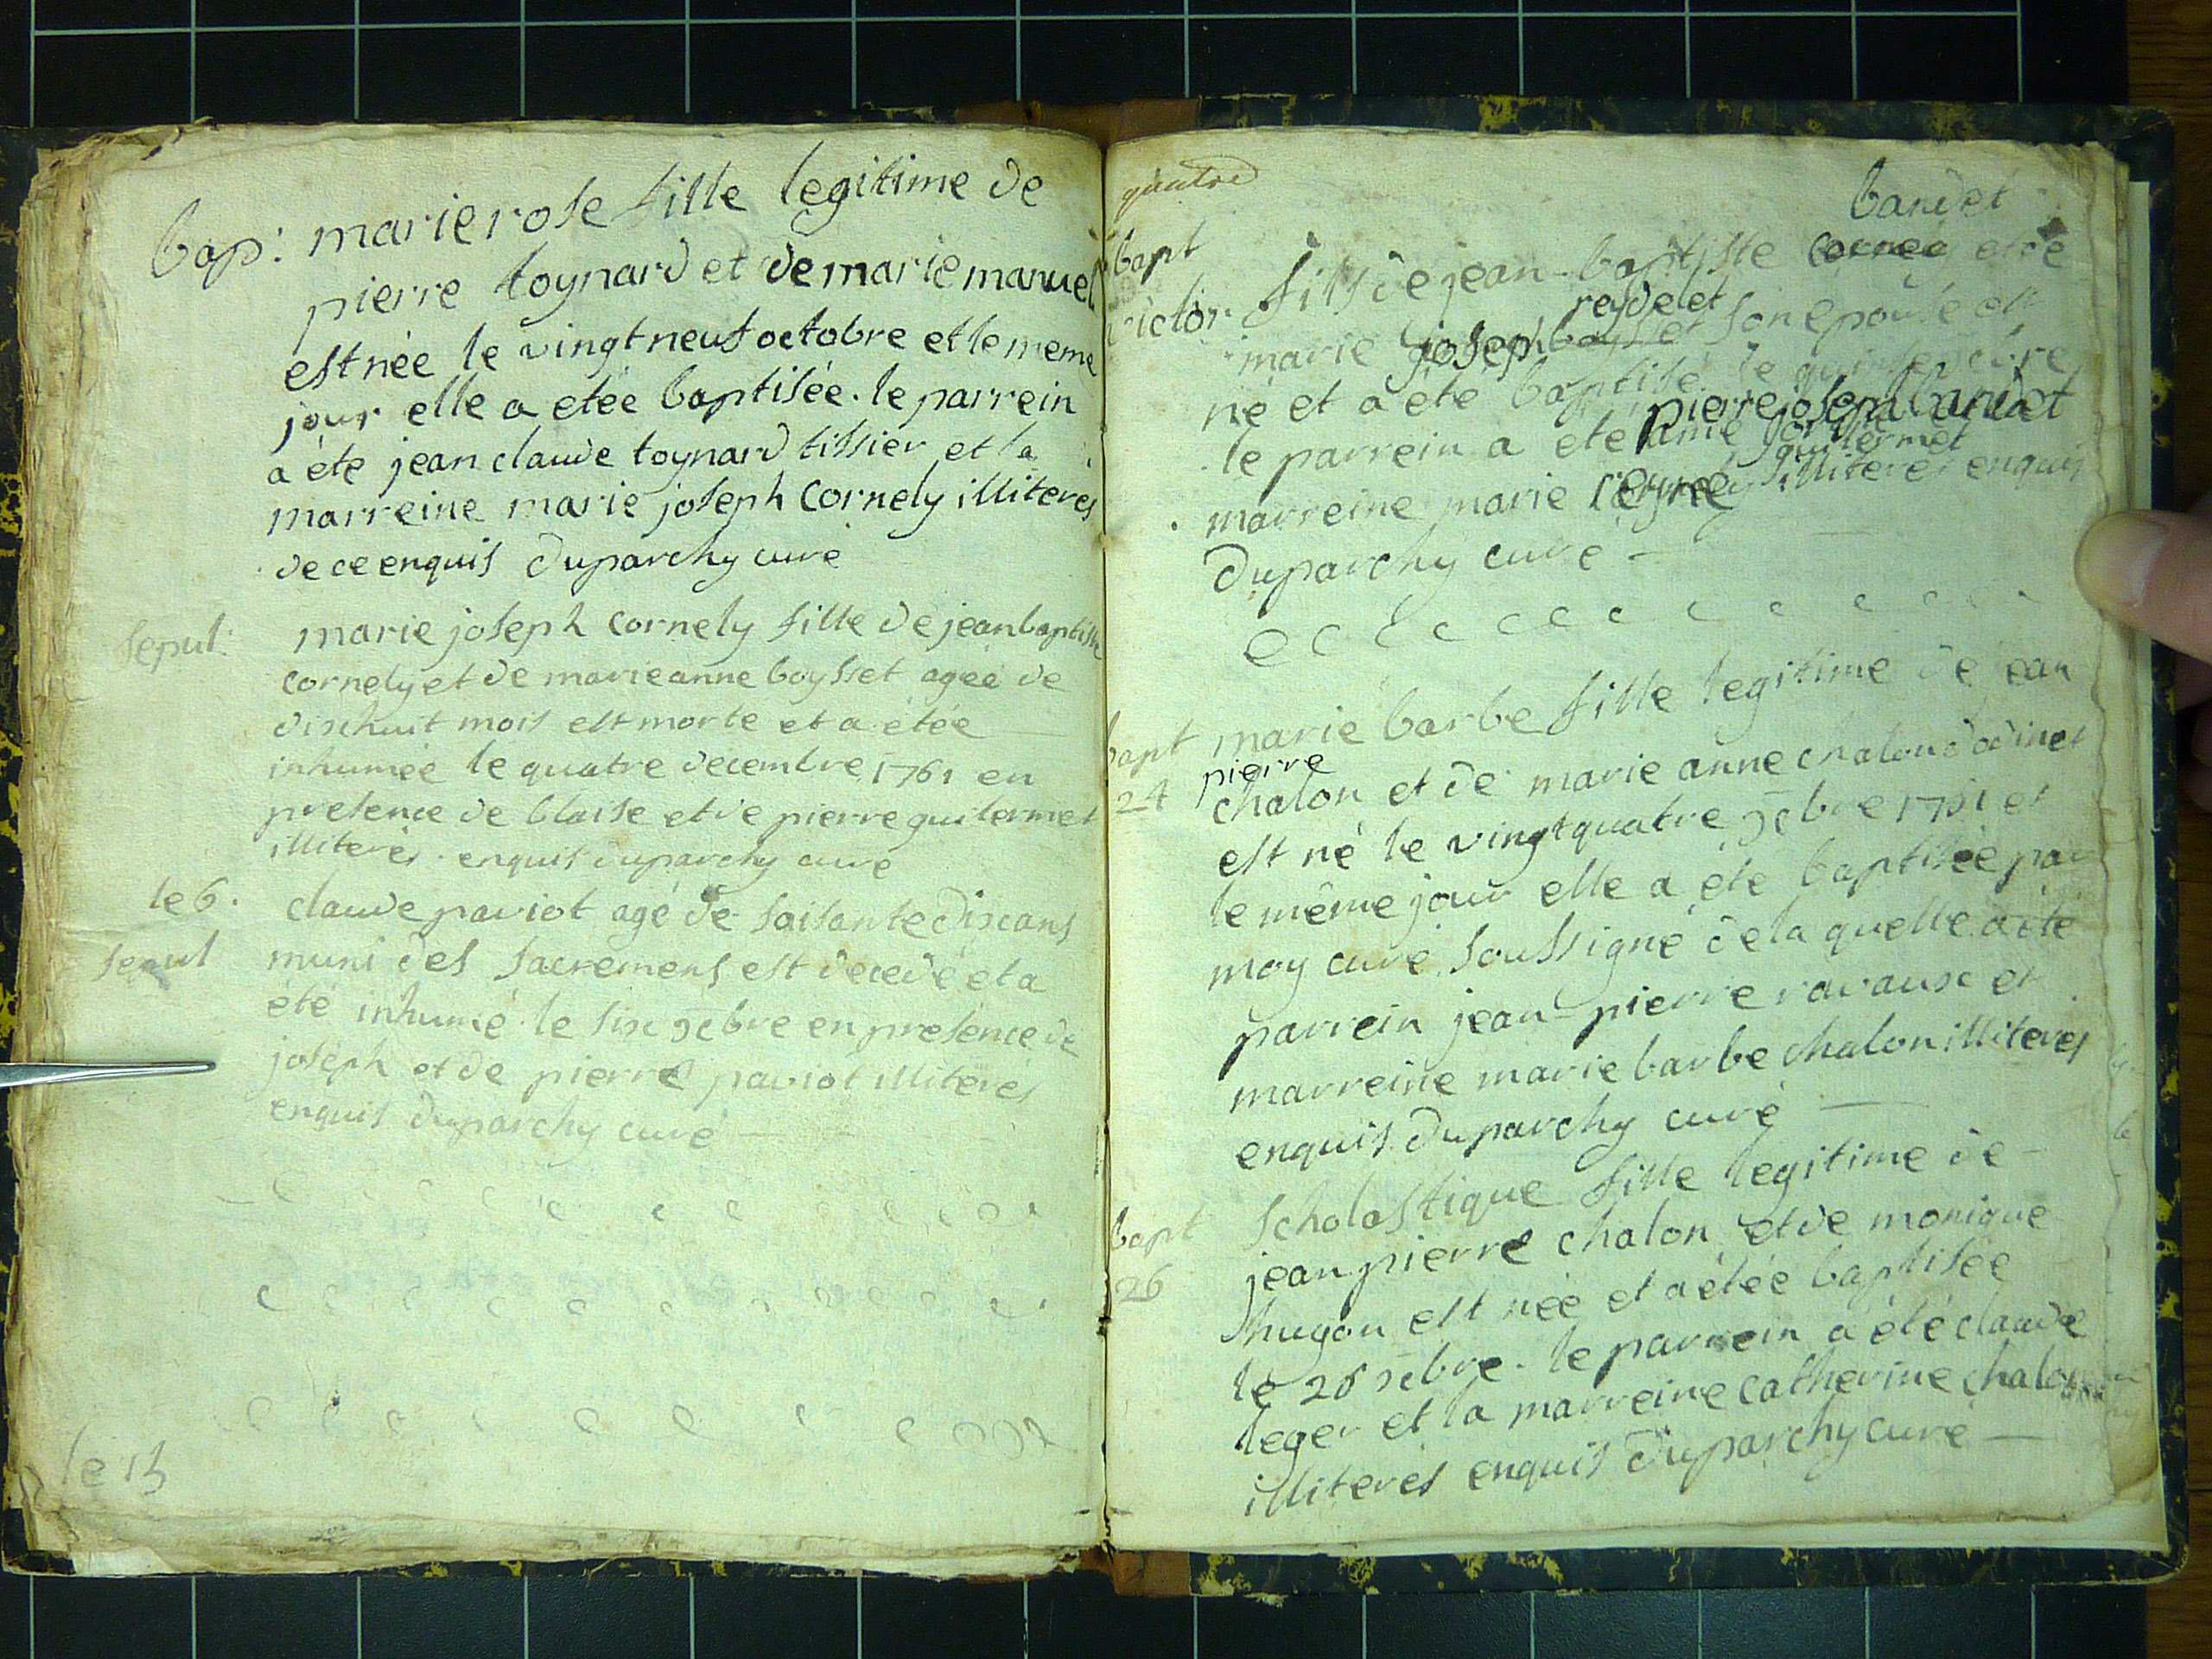 bap: marie rose fille legitime de
pierre toynard et de marie manuel
est née le vingt neuf octobre et le meme
jour elle a etée baptisée. le parrein
a été jean claude toynard tissier et la
marreine marie joseph Cornely illiterés
de ce enquis duparchy curé
sepul: marie joseph cornely fille de jean baptiste
cornely et de marie anne boysset agée de
dixhuit mois est morte et a étée
inhumée le quatre decembre 1761 en
presence de blaise et de pierre guilermet
illiterés enquis duparchy curé
le 6. claude paviot agé de soisante dix ans
sepul muni des sacremens est decedé et a
été inhumé le six xbre en presence de
joseph et de pierre paviot illiterés
enquis duparchy curé
le 15
quatre
bandet
bapt
victor fils de jean baptiste et de
reydelet
marie joseph son epouse est
né et a été baptisé le
pierre joseph bandet
le parrein a eté
guilermet
marreine marie illiterés enquis
duparchy curé
bapt marie barbe fille legitime de jean
pierre
24 chalon et de marie anne chalon
est né le vingt quatre xbre 1761 et
le même jour elle a été baptisée par
moy curé soussigné de la quelle a été
parrein jean pierre ravaux et
marreine marie barbe chalon illiterés
enquis duparchy curé
bapt scholastique fille legitime de
26 jean pierre chalon et de monique
hugon est née et a étée baptisée
le 26 xbre. le parrein a été claude
leger et la marreine catherine chalon
illiterés enquis duparchy curé